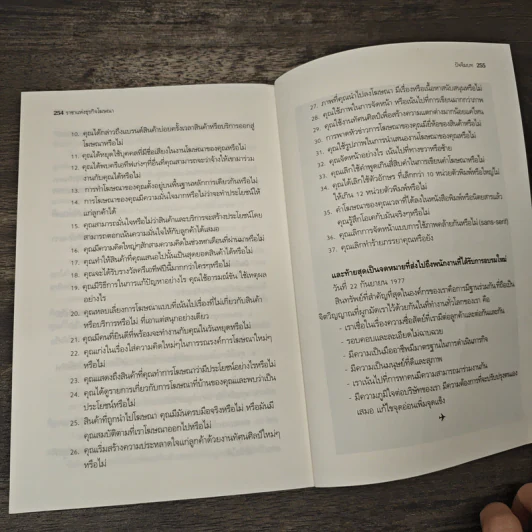 254 ราชาแห่งธุรกิจโฆษณา
10. คุณได้กล่าวถึงแบรนด์สินค้าบ่อยครั้งเวลาสินค้าหรือบริการออกสู่
โฆษณาหรือไม่
11. คุณได้หยุดใช้บุคคลที่มีชื่อเสียงในงานโฆษณาของคุณหรือไม่
12. คุณได้พบครีเอทีฟเก่งๆที่อื่นที่คุณสามารถจะว่าจ้างให้เขามาร่วม
งานกับคุณได้หรือไม่
13. การทำโฆษณาของคุณตั้งอยู่บนพื้นฐานหลักการเดียวกันหรือไม่
14. การโฆษณาของคุณมีความมั่นใจมากหรือไม่ว่าจะทำประโยชน์ให้
แก่ลูกค้าได้
15. คุณสามารถมั่นใจหรือไม่ว่าสินค้าและบริการจะสร้างประโยชน์โดย
สามารถตอกเน้นความมั่นใจให้กับลูกค้าได้เสมอ
16. คุณมีความคิดใหญ่ๆสักสามความคิดในช่วงหกเดือนที่ผ่านมาหรือไม่
17. คุณทำให้สินค้าที่คุณเสนอไปนั้นเป็นสุดยอดสินค้าได้หรือไม่
18. คุณจะได้รับรางวัลครีเอทีฟปีนี้มากกว่าใครๆหรือไม่
19. คุณมีวิธีการในการแก้ปัญหาอย่างไร คุณใช้อารมณ์ขัน ใช้เหตุผล
อย่างไร
20. คุณหลบเลี่ยงการโฆษณาแบบที่เน้นไปเรื่องที่ไม่เกี่ยวกับสินค้า
หรือบริการหรือไม่ ที่เอาแต่สนุกอย่างเดียว
21. คุณมีคนที่ยินดีที่พร้อมจะทำงานกับคุณในวันหยุดหรือไม่
22. คุณเก่งในเรื่องใส่ความคิดใหม่ๆในการรณรงค์การโฆษณาใหม่ๆ
หรือไม่
23. คุณแสดงถึงสินค้าที่คุณทำการโฆษณาว่ามีประโยชน์อย่างไรหรือไม่
24. คุณได้ดูรายการเกี่ยวกับการโฆษณาที่บ้านของคุณและพบว่าเป็น
ประโยชน์หรือไม่
25. สินค้าที่ถูกนำไปโฆษณา คุณมีมันครบมือจริงหรือไม่ หรือมันมี
คุณสมบัติตามที่เราโฆษณาออกไปหรือไม่
26. คุณเริ่มสร้างความประหลาดใจแก่ลูกค้าด้วยงานทัศนศิลป์ใหม่ๆ
หรือไม่
ปัจฉิมบท 255
27. ภาพที่คุณนำไปลงโฆษณา มีเรื่องหรือเนื้อหาสนับสนุนหรือไม่
28. คุณใช้ภาพในการจัดหน้า หรือเน้นไปที่การเขียนมากกว่าภาพ
29. คุณใช้งานทัศนศิลป์เพื่อสร้างความแตกต่างมากน้อยแค่ไหน
30. การพาดหัวข่าวการโฆษณาของคุณมียี่ห้อของสินค้าหรือไม่
31. คุณใช้รูปภาพในการนำเสนองานโฆษณาของคุณหรือไม่
32. คุณจัดหน้าอย่างไร เน้นไปที่ทางขวาหรือซ้าย
33. คุณเลิกใช้คำพูดเกินสี่สิบคำในการเขียนคำโฆษณาหรือไม่
34. คุณได้เลิกใช้ตัวอักษร ที่เล็กกว่า 10 หน่วยตัวพิมพ์หรือใหญ่ไม่
ให้เกิน 12 หน่วยตัวพิมพ์หรือไม่
35. คำโฆษณาของคุณเวลาที่ได้ลงในหนังสือพิมพ์หรือนิตยสารแล้ว
คุณรู้สึกโอเคกับมันจริงๆหรือไม่
36. คุณเลิกการจัดหน้าแบบการใช้ภาพคล้ายกันหรือไม่ (sans-serif)
37. คุณเลิกทำร้ายภรรยาคุณหรือยัง
และท้ายสุดเป็นจดหมายที่ส่งไปถึงพนักงานที่ได้รับการอบรมใหม่
วันที่ 22 กันยายน 1977
สินทรัพย์ที่สำคัญที่สุดในองค์กรของเราคือการมีฐานร่วมกัน ที่ถือเป็น
จิตวิญญาณที่ผูกมัดเราไว้ด้วยกันในที่ทำงานทั่วโลกของเรา คือ
- เราเชื่อในเรื่องความซื่อสัตย์ที่เรามีต่อลูกค้าและต่อกันและกัน
- รอบคอบและละเอียดไม่ฉาบฉวย
- มีความเป็นมืออาชีพมีมาตรฐานในการดำเนินการกิจ
- มีความเป็นมนุษย์ที่ดีและสุภาพ
- เราเน้นไปที่การหาคนมีความสามารถมาร่วมงานกัน
- มีความภูมิใจต่อบริษัทของเรา มีความต้องการที่จะปรับปรุงตนเอง
เสมอ แก้ไขจุดอ่อนเพิ่มจุดแข็ง